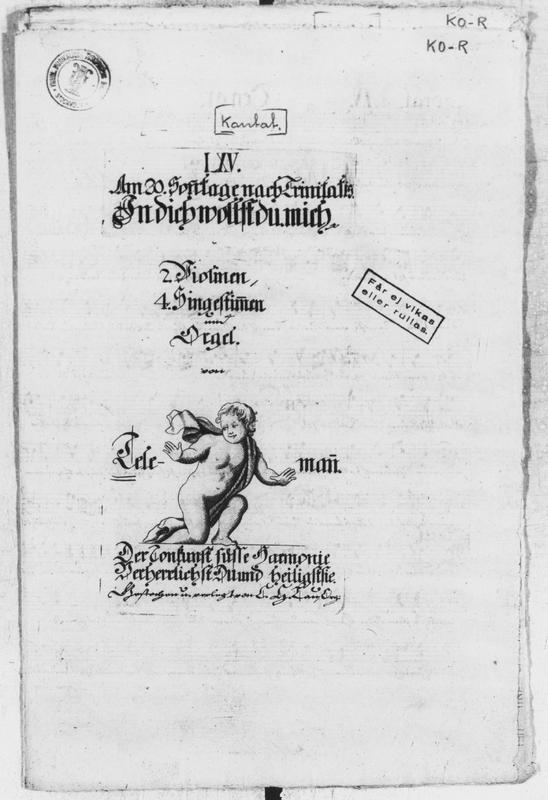 KO-R
KO-R
Kantat.
LXV.
Am 20. Sonntage nach Trinitatis
In dich wollst du mich.
2. Violinen,
4. Singestim̅en
und
Orgel.
von
Tele-
man̅.
Får ej vikas
eller rullas.
Der Tonkunst süsse Harmonie
Verherrlichst Du und heiligst sie.
Gestochen u. verlegt von